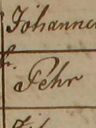 Johannes
Fehr